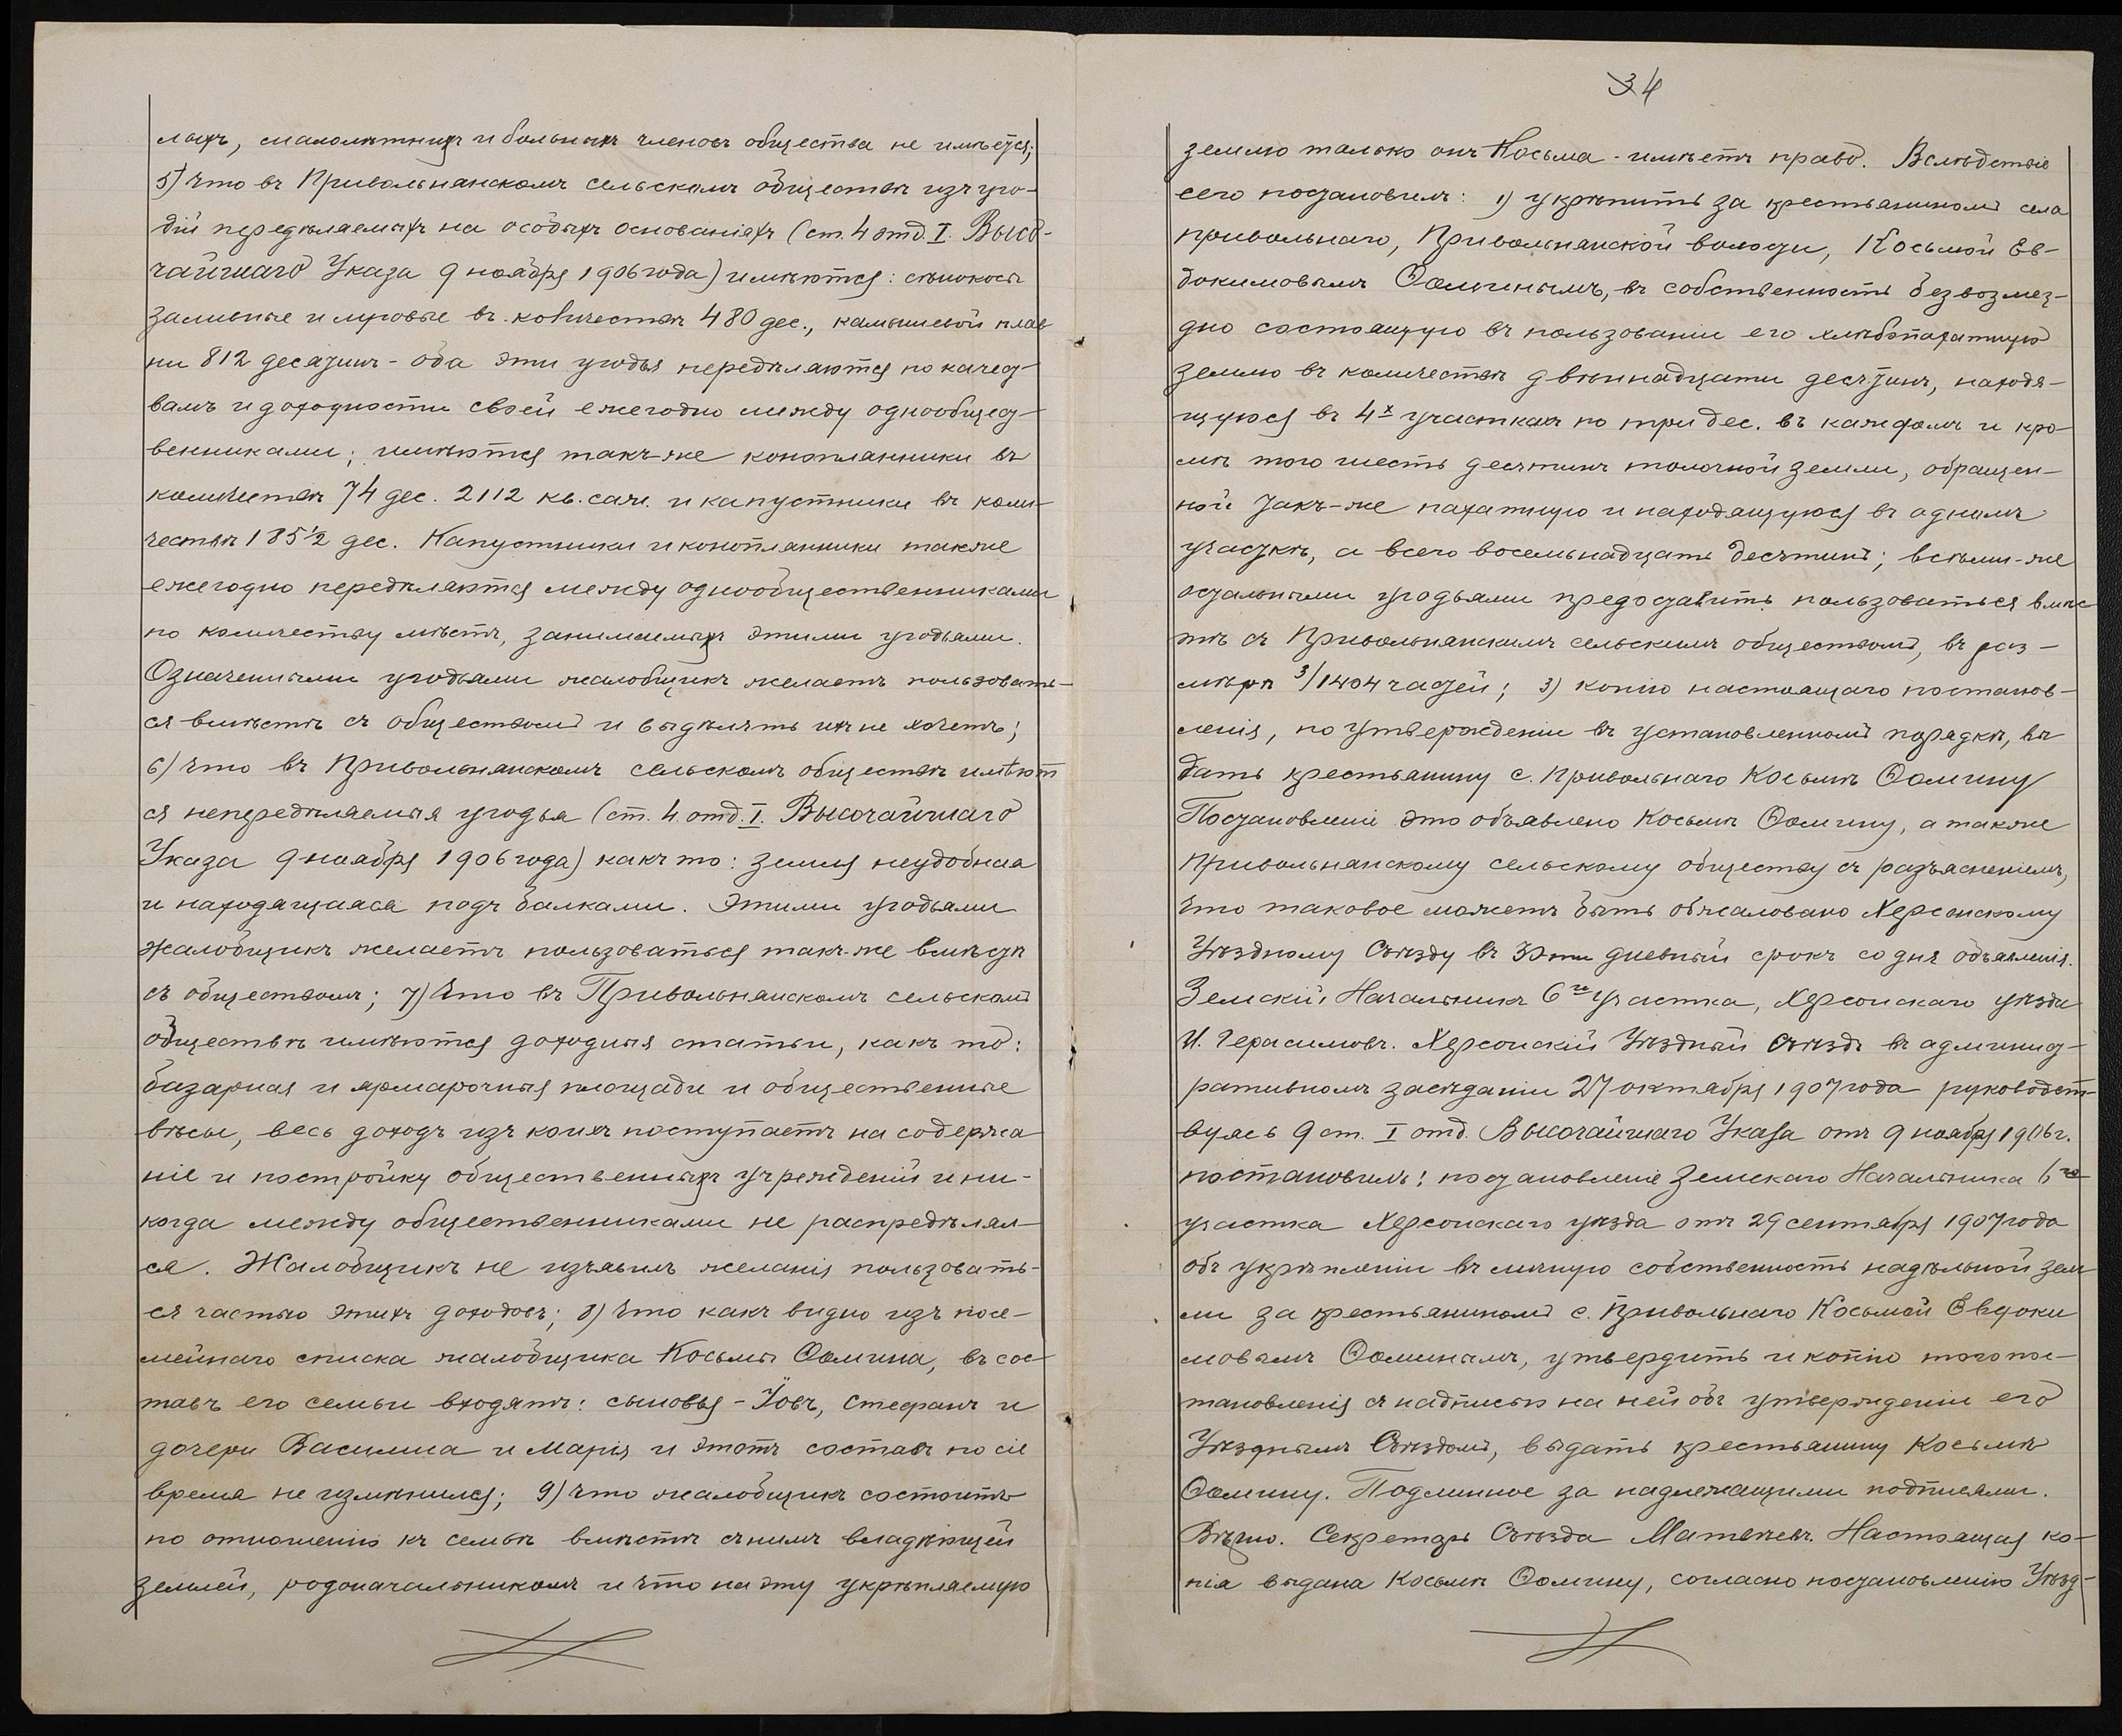 лыхъ, малолѣтнихъ и больныхъ членовъ общества не имѣется;
5) Что въ Привольнянскомъ сельскомъ обществѣ изъ уго-
дій передѣляемыхъ на особыхъ основаніяхъ (ст. 4 отд. I. Высо-
чайшаго Указа 9 ноября 1906 года) имѣются: сѣнокосы
заливные и луговые въ количествѣ 480 дес., камышевой плав
ни 812 десятинъ - оба эти угодья передѣляются по качест-
вамъ и доходности своей ежегодно между однообщест-
венниками; имѣются такъ-же конопляники въ
количествѣ 74 дес. 2112 кв. саж. и капустники въ коли-
чествѣ 185½ дес. Капустники и конопляники также
ежегодно передѣляются между однообщественниками
по количеству мѣстъ, занимаемыхъ этими угодьями.
Означенными угодьями жалобщикъ желаетъ пользовать-
ся вмѣстѣ съ обществомъ и выдѣлять ихъ не хочетъ;
6) Что въ Привольнянскомъ сельскомъ обществѣ имѣют
ся непередѣляемыя угодья (ст. 4. отд. I. Высочайшаго
Указа 9 ноября 1906 года) какъ то: земля неудобная
и находящаяся подъ балками. Этими угодьями
жалобщикъ желаетъ пользоваться такъ-же вмѣстѣ
съ обществомъ; 7) Что въ Привольнянскомъ сельскомъ
обществѣ имѣются доходныя статьи, какъ то:
базарная и ярмарочныя площади и общественные
вѣсы, весь доходъ изъ коихъ поступаетъ на содержа
ніе и постройку общественныхъ учрежденій и ни-
когда между общественниками не распредѣлял-
ся. Жалобщикъ не изъявилъ желанія пользовать-
ся частью этихъ доходовъ; 8) Что какъ видно изъ посе-
мейнаго списка жалобщика Косьмы Ѳомина, въ сос-
тавъ его семьи входятъ: сыновья - Іовъ, Стефанъ и
дочери Василиса и Марія и этотъ составъ по сіе
время не измѣнился; 9) Что жалобщикъ состоитъ
по отношенію къ семьѣ вмѣстѣ съ нимъ владѣющей
землей, родоначальникомъ и что на эту укрѣпляемую
34
землю только онъ Косьма - имѣетъ право. Вслѣдствіе
сего постановилъ: 1) укрѣпить за крестьяниномъ села
Привольнаго, Привольнянской волости, Косьмой Ев-
докимовымъ Ѳоминымъ, въ собственность безвозмез-
дно состоящую въ пользованіи его хлѣбопахатную
землю въ количествѣ двѣнадцати десятинъ, находя-
щуюся въ 4х участкахъ по три дес. въ каждомъ и кро-
мѣ того шесть десятинъ толочной земли, обращен-
ной такъ-же пахатную и находящуюся въ одномъ
участкѣ, а всего восемьнадцать десятинъ; всѣми-же
остальными угодьями предоставить пользоваться вмѣс
тѣ съ Привольнянскимъ сельскимъ обществомъ, въ раз-
мѣрѣ 3/1404 частей; 3) копію настоящаго постанов-
ленія, по утвержденіи въ установленномъ порядкѣ, вы
дать крестьянину с. Привольнаго Косьмѣ Ѳомину
Постановленіе это объявлено Косьмѣ Ѳомину, а также
Привольнянскому сельскому обществу съ разъясненіемъ,
что таковое можетъ быть обжаловано Херсонскому
Уѣздному Съѣзду въ 30ти дневный срокъ со дня объявленія.
Земскій Начальникъ 6го участка, Херсонскаго уѣзда
И. Герасимовъ. Херсонскій Уѣздный Съѣздъ въ админист-
ративномъ засѣданіи 27 октября 1907 года руководст-
вуясь 9 ст. I отд. Высочайшаго Указа отъ 9 ноября 1906 г.
постановилъ: постановленіе Земскаго Начальника 6го
участка Херсонскаго уѣзда отъ 29 сентября 1907 года
объ укрѣпленіи въ личную собственность надѣльной зем
ли за крестьяниномъ с. Привольнаго Косьмой Евдоки
мовымъ Ѳоминымъ, утвердить и копію того пос-
тановленія съ надписью на ней объ утвержденіи его
Уѣзднымъ Съѣздомъ, выдать крестьянину Косьмѣ
Ѳомину. Подлинное за надлежащими подписями.
Вѣрно. Секретарь Съѣзда Матвѣевъ. Настоящая ко-
пія выдана Косьмѣ Ѳомину, согласно постановленію Уѣзд-